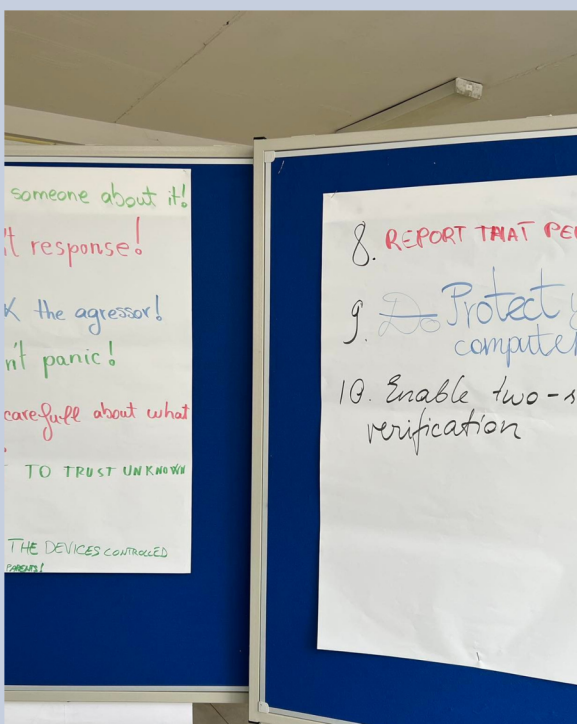 someone about it!
't response!
the agressor!
n't panic!
carefull about what
TO TRUST UNKNOWN
THE DEVICES CONTROLLED
PARENTS!
8. REPORT THAT PE
9. Do Protect y
computer
10. Enable two-s
verification